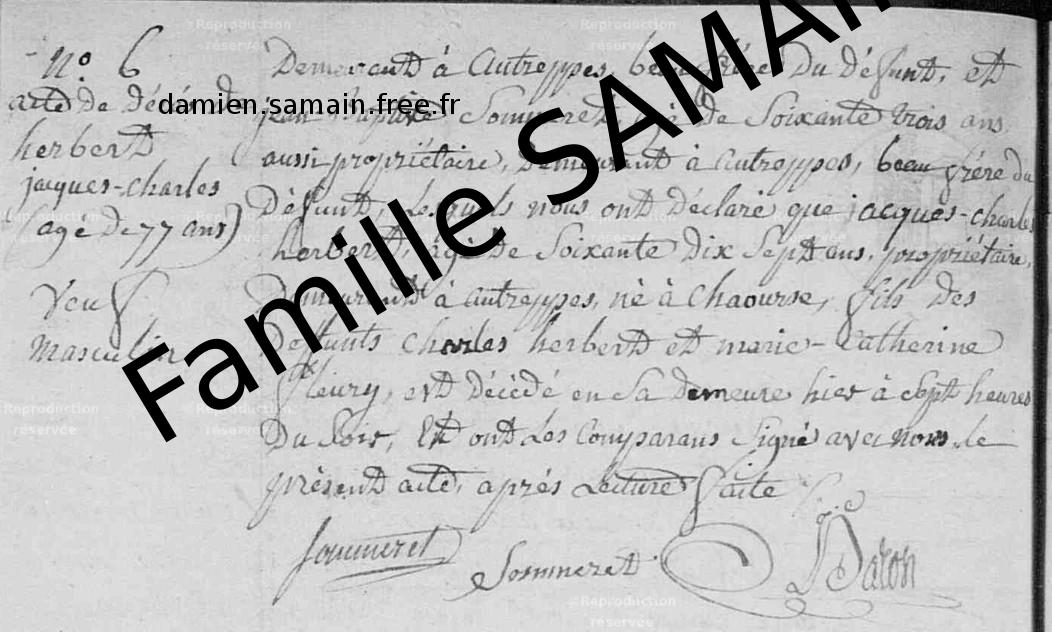 n.° 6
acte de décès de
herbert
jacques-charles
(agé de 77 ans)
Veuf
masculin
Demeurant à autreppes, beau frère du défunt, et
jean Baptiste Sommeret, agé de Soixante trois ans
aussi propriétaire, demeurant à autreppes, beau frére du
Défunt, Lesquels nous ont déclaré que jacques-charles
herbert, agé de Soixante dix Sept ans, propriétaire,
Demeurant à autreppes, né à Chaourse, fils des
Deffunts Charles herbert et marie-Catherine
fleury, est décédé en Sa demeure hier à Sept heures
Du Soir, Et ont Les Comparans Signé avec nous le
présent acte, après Lecture faite
Sommeret
Sommeret
Daron
Famille SAMAIN
damien.samain.free.fr
©Reproduction
réservée